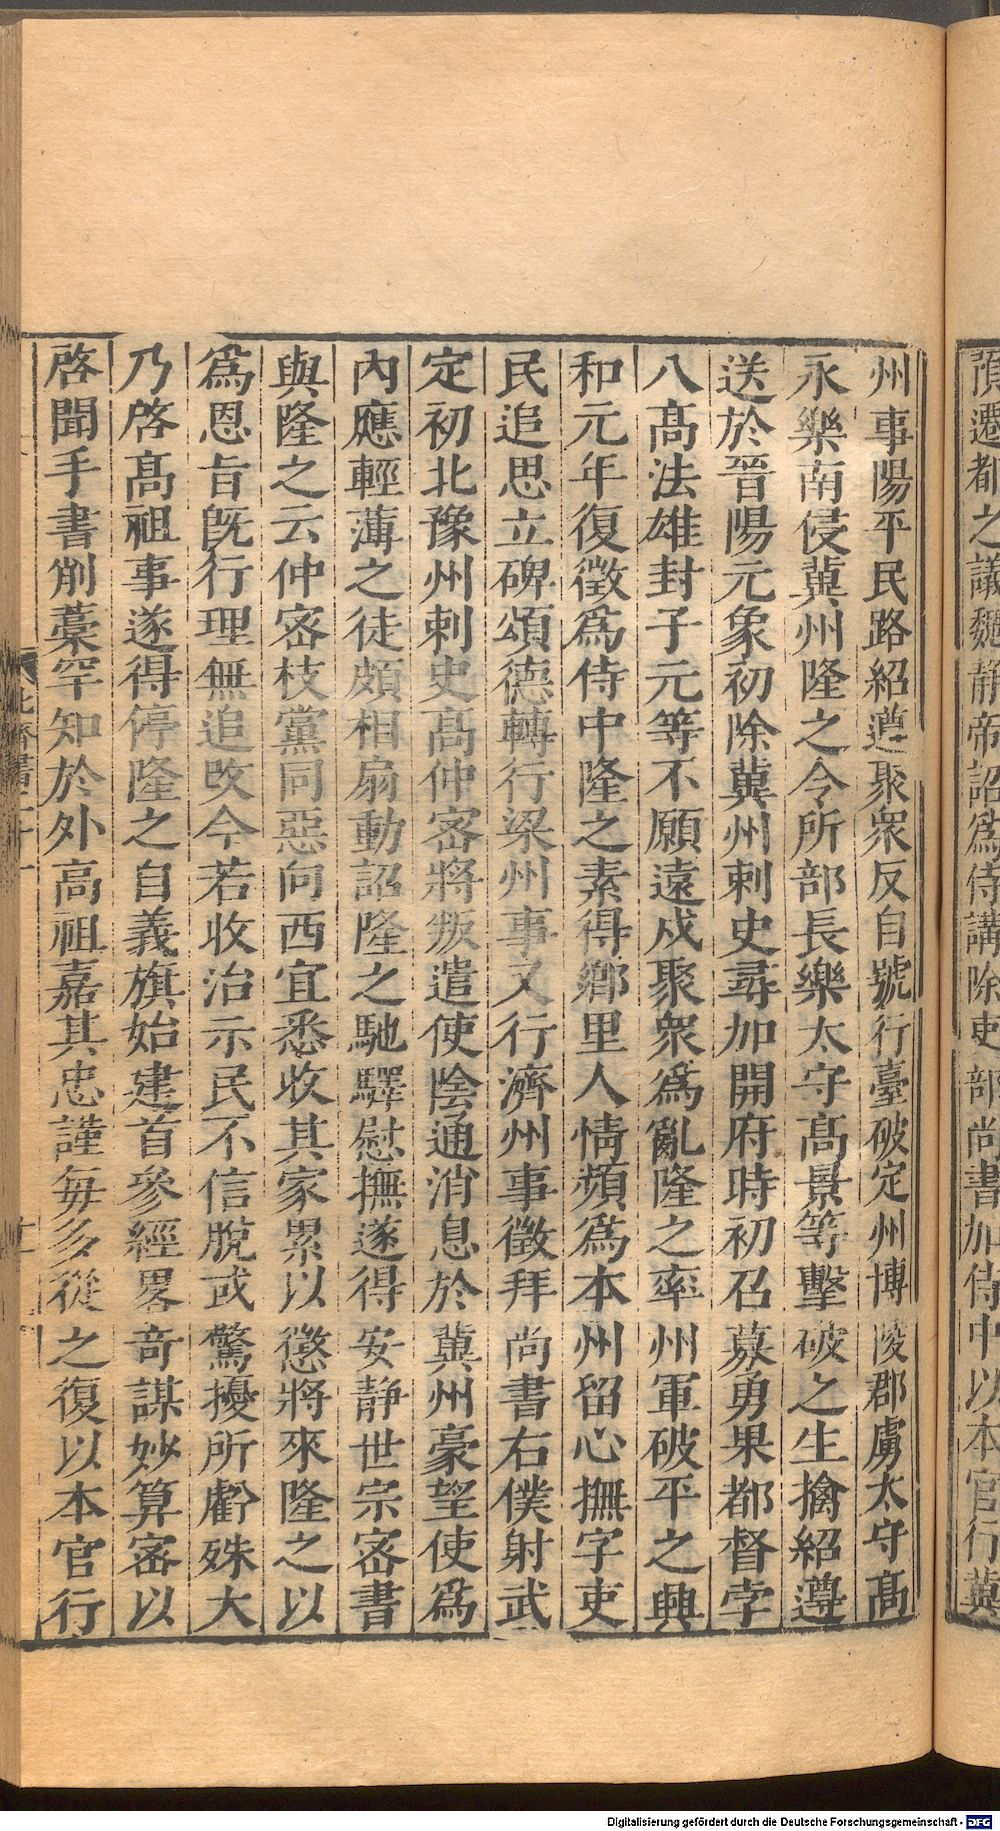 預遷都之議魏靜帝詔爲侍講除吏部尚書加侍中以本官行冀
州事陽平民路紹遵聚衆反自號行臺破定州博陵郡虜太守髙
永樂南侵冀州隆之令所部長樂太守髙景等擊破之生擒紹遵
送於晉陽元象初除冀州刺史尋加開府時初召募勇果都督孛
八髙法雄封子元等不願遠戍聚衆爲亂隆之率州軍破平之興
和元年復徵爲侍中隆之素得鄉里人情頻爲本州留心撫字吏
民追思立碑頌德轉行梁州事又行濟州事徵拜尚書右僕射武
定初北豫州刺史髙仲密將叛遣使陰通消息於冀州豪望使爲
內應輕薄之徒頗相扇動詔隆之馳驛慰撫遂得安靜世宗密書
與隆之云仲密枝黨同惡向西宜悉收其家累以懲將來隆之以
爲恩旨旣行理無追改今若收治示民不信脫或驚擾所虧殊大
乃啓髙祖事遂得停隆之自義旗始建首參經畧奇謀妙算密以
啓聞手書削藁罕知於外高祖嘉其忠謹每多從之復以本官行
北齊書二十一
Digitalisierung gefördert durch die Deutsche Forschungsgemeinschaft - DFG